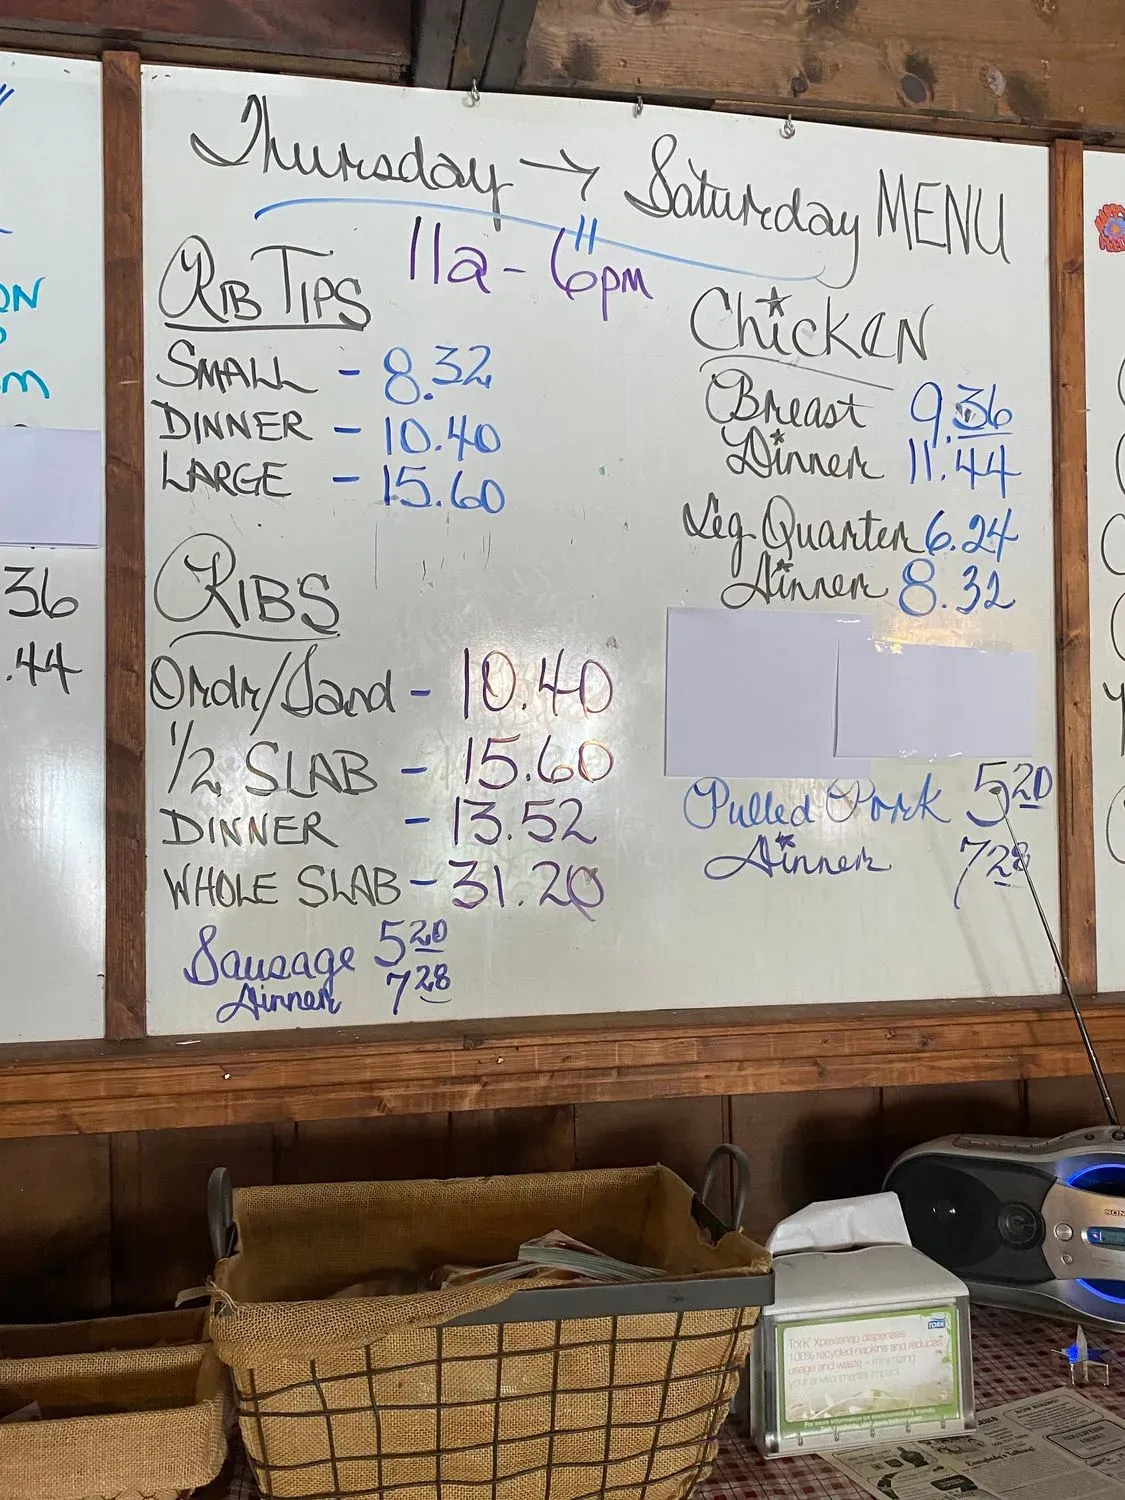 Thursday → Saturday MENU
11a - 6pm
RIB TIPS
SMALL - 8.32
DINNER - 10.40
LARGE - 15.60
RIBS
Ordr/Sand - 10.40
1/2 SLAB - 15.60
DINNER - 13.52
WHOLE SLAB - 31.20
Sausage 5 20
Dinner 7 28
Chicken
Breast 9.36
Dinner 11.44
Leg Quarter 6.24
Dinner 8.32
Pulled Pork 5 20
Dinner 7 28
ON
m
36
.44
SONY
TORK
Tork Xpressnap dispenses
100% recycled napkins and reduces
usage and waste – minimizing
your environmental impact.
ADVERTISE
HERE!